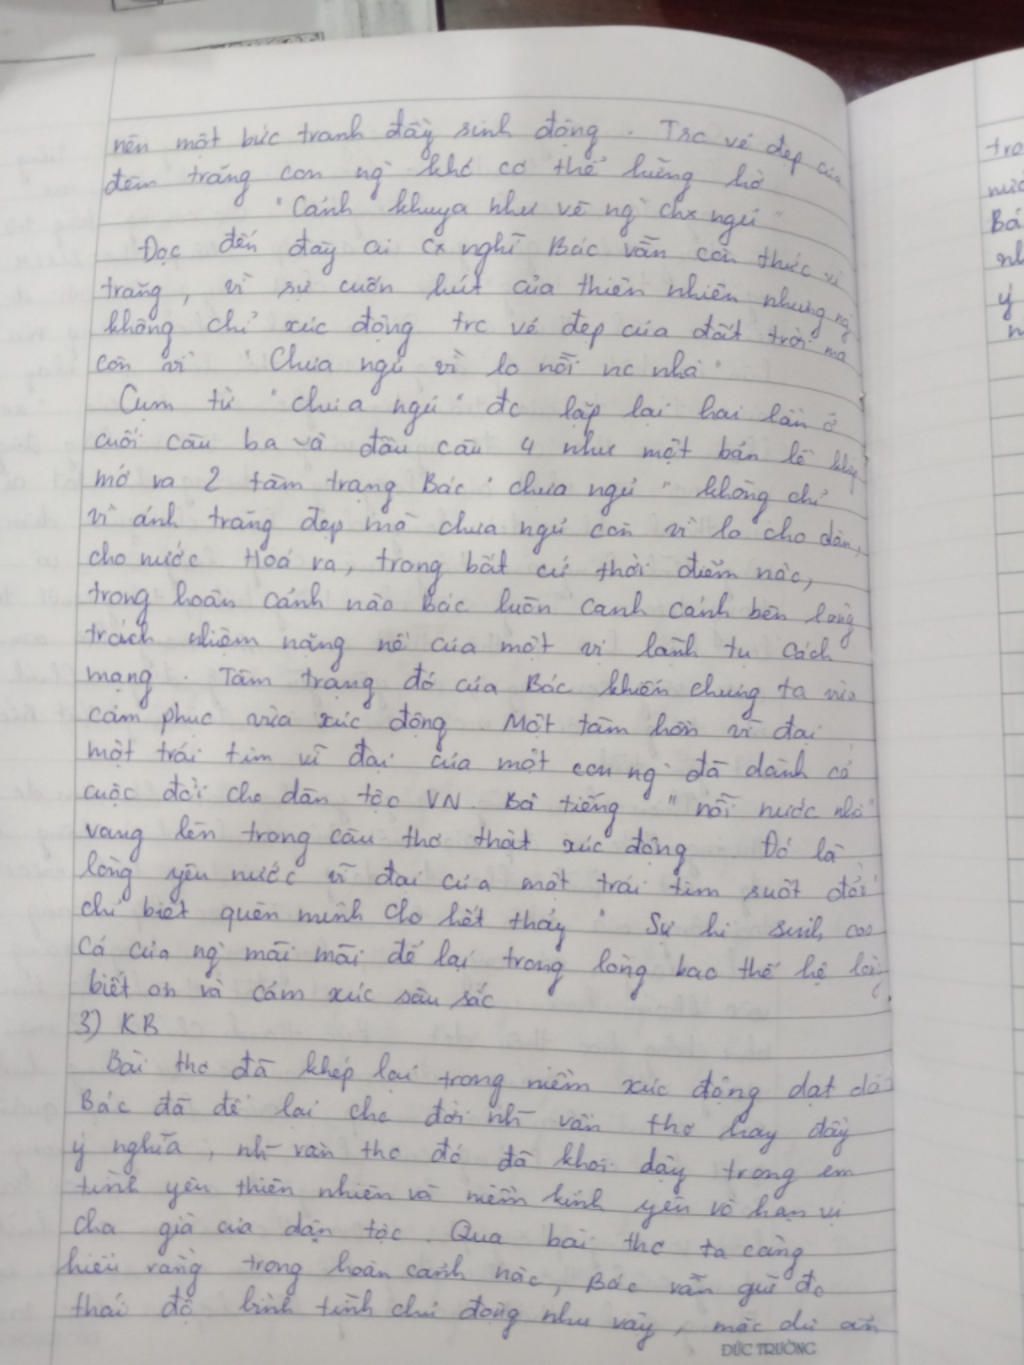 nên một bức tranh đầy sinh động. Trc vẻ đẹp của
đêm trăng con ng` khó có thể hững hờ
"Cảnh khuya như vẽ ng` chx ngủ"
Đọc đến đây ai cx nghĩ Bác vẫn còn thức vì
trăng, vì sự cuốn hút của thiên nhiên nhưng ng`
không chỉ xúc động trc vẻ đẹp của đất trời mà
còn vì "Chưa ngủ vì lo nỗi nc nhà"
Cụm từ "chưa ngủ" đc lặp lại hai lần ở
cuối câu ba và đầu câu 4 như một bản lề
mở ra 2 tâm trạng Bác "chưa ngủ" không chỉ
vì ánh trăng đẹp mà chưa ngủ còn vì lo cho dân,
cho nước Hoá ra, trong bất cứ thời điểm nào,
trong hoàn cảnh nào Bác luôn canh cánh bên lòng
trách nhiệm nặng nề của một vị lãnh tụ cách
mạng. Tâm trạng đó của Bác khiến chúng ta vừa
cảm phục vừa xúc động. Một tâm hồn vĩ đại
một trái tim vĩ đại của một con ng` đã dành cả
cuộc đời cho dân tộc VN. Ba tiếng "nỗi nước nhà"
vang lên trong câu thơ thật xúc động. Đó là
lòng yêu nước vĩ đại của một trái tim suốt đời
chỉ biết quên mình cho hết thảy" Sự hi sinh cao
cả của ng` mãi mãi để lại trong lòng bao thế hệ lòng
biết ơn và cảm xúc sâu sắc
3) KB
Bài thơ đã khép lại trong niềm xúc động dạt dào
Bác đã để lại cho đời nh~ vần thơ hay đầy
ý nghĩa, nh~ vần thơ đó đã khơi dậy trong em
tình yêu thiên nhiên và niềm kính yêu vô hạn vị
cha già của dân tộc. Qua bài thơ ta càng
hiểu rằng trong hoàn cảnh nào, Bác vẫn giữ đc
thái độ bình tĩnh chủ động như vậy, mặc dù
ĐỨC TRƯỜNG
tro
nước
Bá
ý